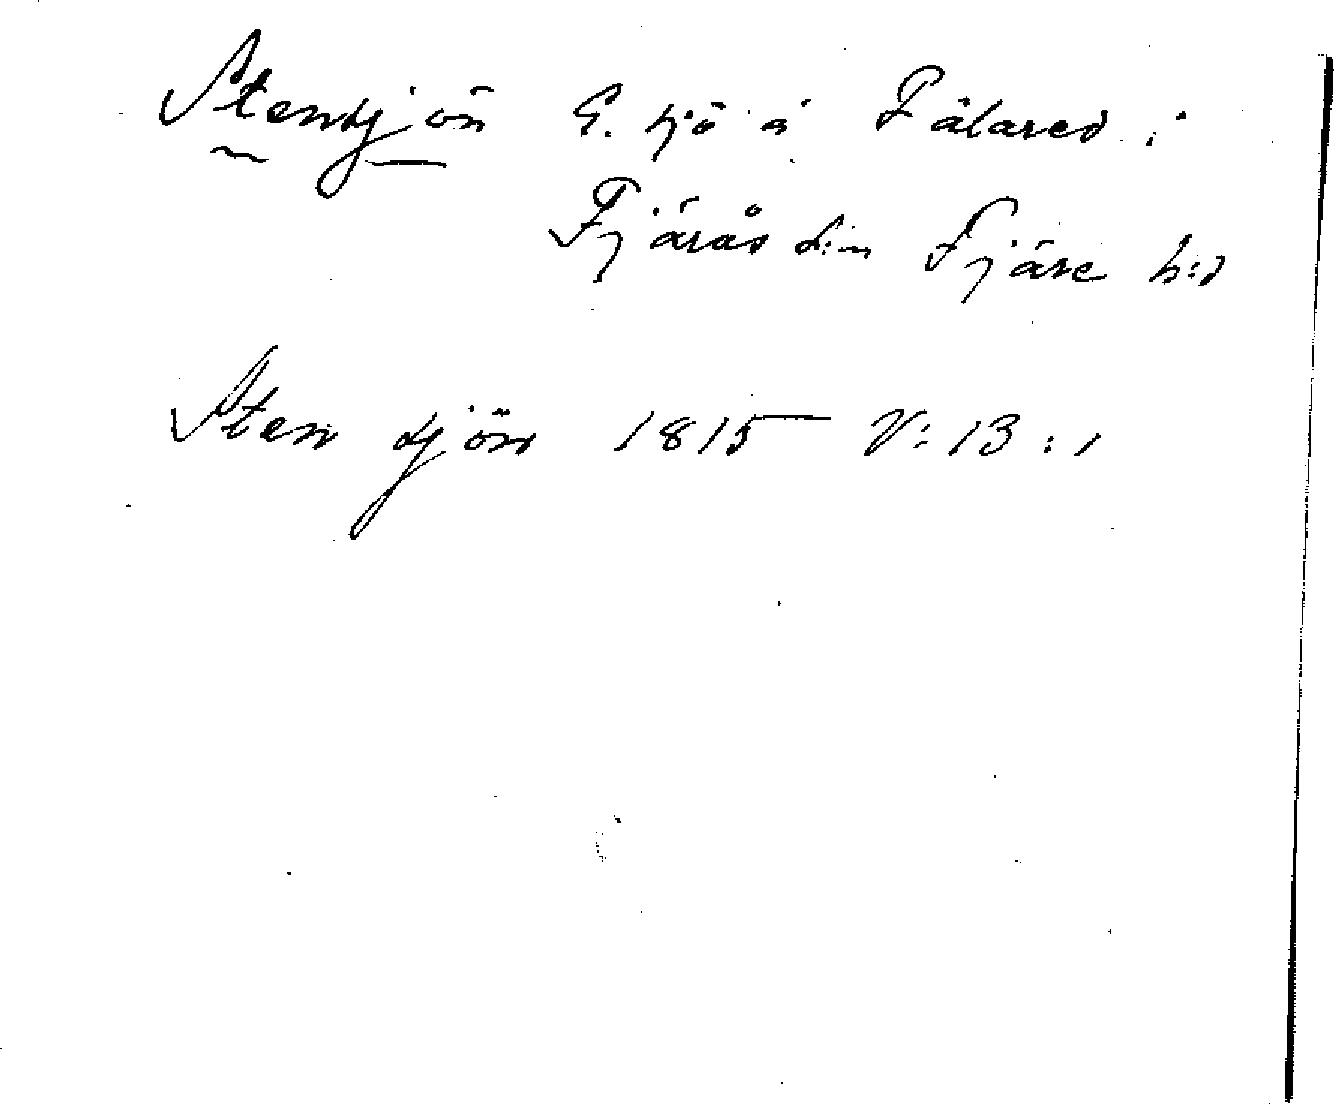 Stensjön E. sjö å Fälared i
Fjärås s:n Fjäre h:d
Sten sjön 1815 V:13:1